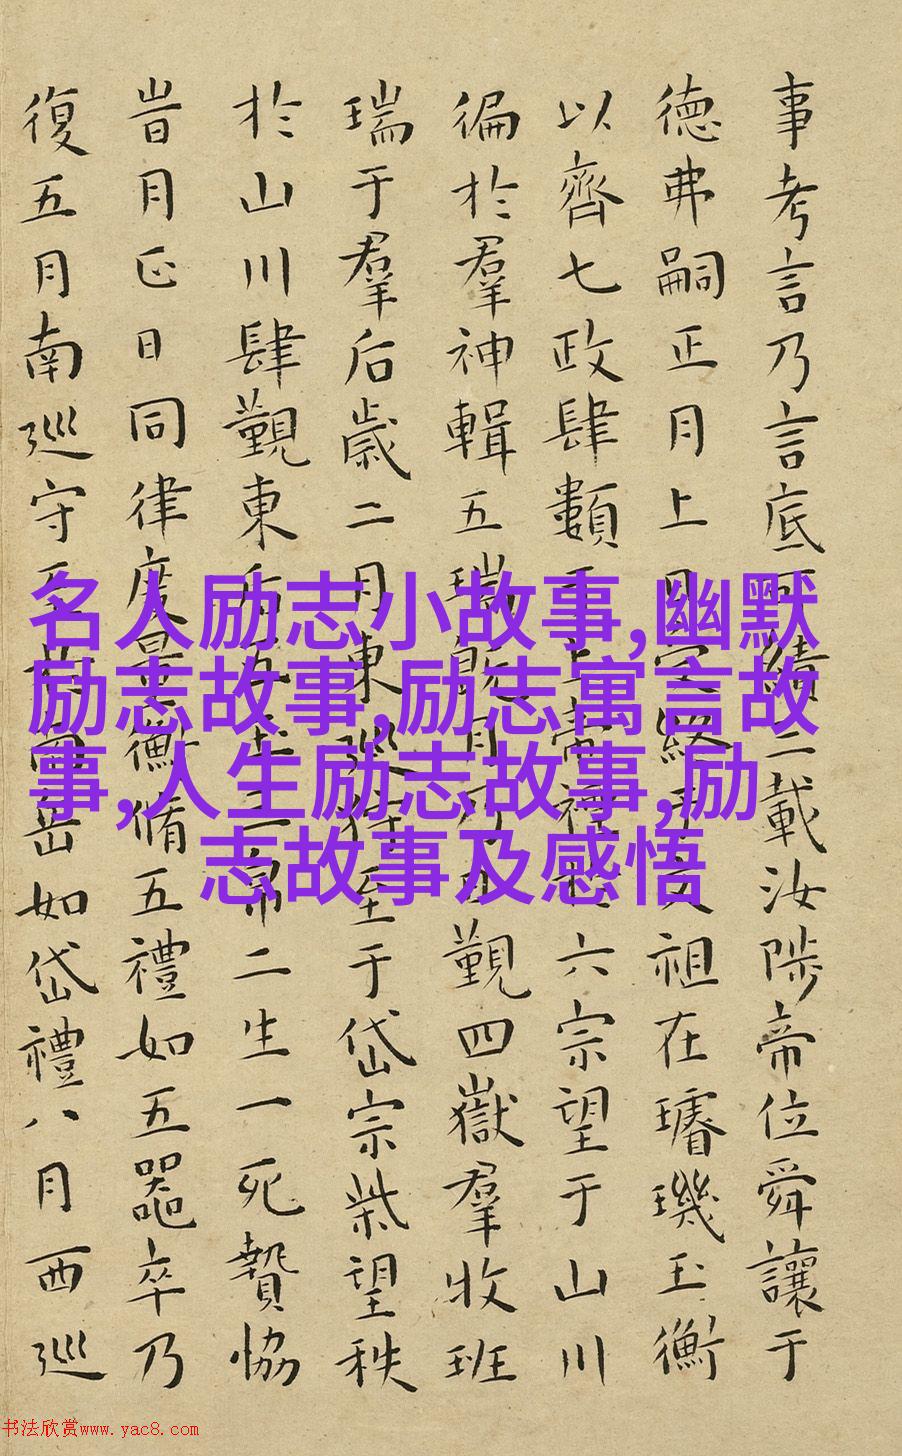 事考言乃言底可績三載汝陟帝位舜讓于
德弗嗣正月上日受終于文祖在璿璣玉衡
以齊七政肆類于上帝禋于六宗望于山川
徧於羣神輯五瑞既月乃日覲四嶽羣牧班
瑞于羣后歲二月東巡狩至于岱宗柴望秩
於山川肆覲東后五玉三帛二生一死贄協
旹月正日同律度量衡脩五禮如五器卒乃
復五月南巡守至南岳如岱禮八月西巡
名人励志小故事,幽默
励志故事,励志寓言故
事,人生励志故事,励
志故事及感悟
书法欣赏www.yac8.com